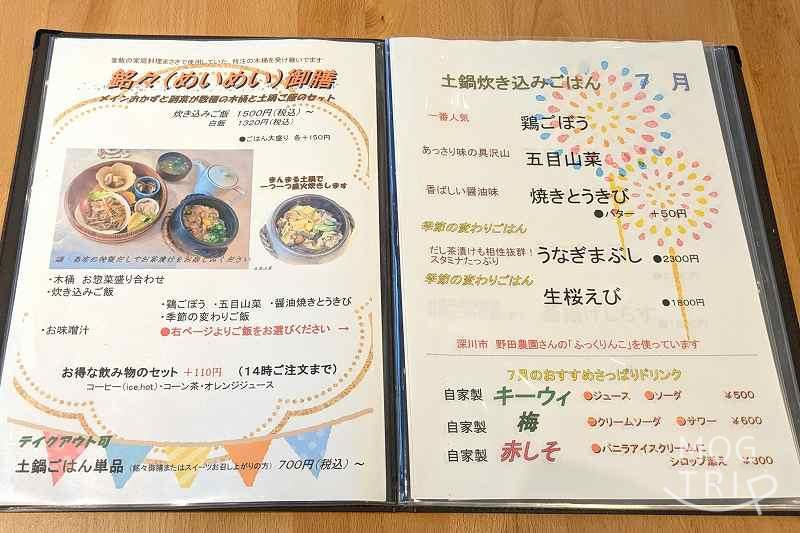 釜飯の家庭料理まささで使用していた、特注の木桶を受け継いでます
銘々(めいめい)御膳
メインおかずと副菜が数種の木桶と土鍋ご飯のセット
炊き込みご飯 1500円(税込)～
白飯 1320円(税込)
●ごはん大盛り 各+150円
まんまる土鍋で
一つ一つ直火炊きします
・木桶 お惣菜盛り合わせ
・炊き込みご飯
・鶏ごぼう ・五目山菜 ・醤油焼きとうきび
・季節の変わりご飯
・お味噌汁
●右ページよりご飯をお選びください →
お得な飲み物のセット +110円 (14時ご注文まで)
コーヒー(ice.hot)・コーン茶・オレンジジュース
テイクアウト可
土鍋ごはん単品 (銘々御膳またはスイーツお召し上がりの方) 700円(税込)～
土鍋炊き込みごはん 7月
一番人気 鶏ごぼう
あっさり味の具沢山 五目山菜
香ばしい醤油味 焼きとうきび
●バター +50円
季節の変わりごはん
だし茶漬けも相性抜群!
スタミナたっぷり うなぎまぶし ●2300円
季節の変わりごはん
生桜えび ●1800円
深川市 野田農園さんの「ふっくりんこ」を使っています
7月のおすすめさっぱりドリンク
自家製 キーウィ ●ジュース ●ソーダ ¥500
自家製 梅 ●クリームソーダ ●サワー ¥600
自家製 赤しそ ●バニラアイスクリームに
シロップ添え ¥300
MOG
TRIP